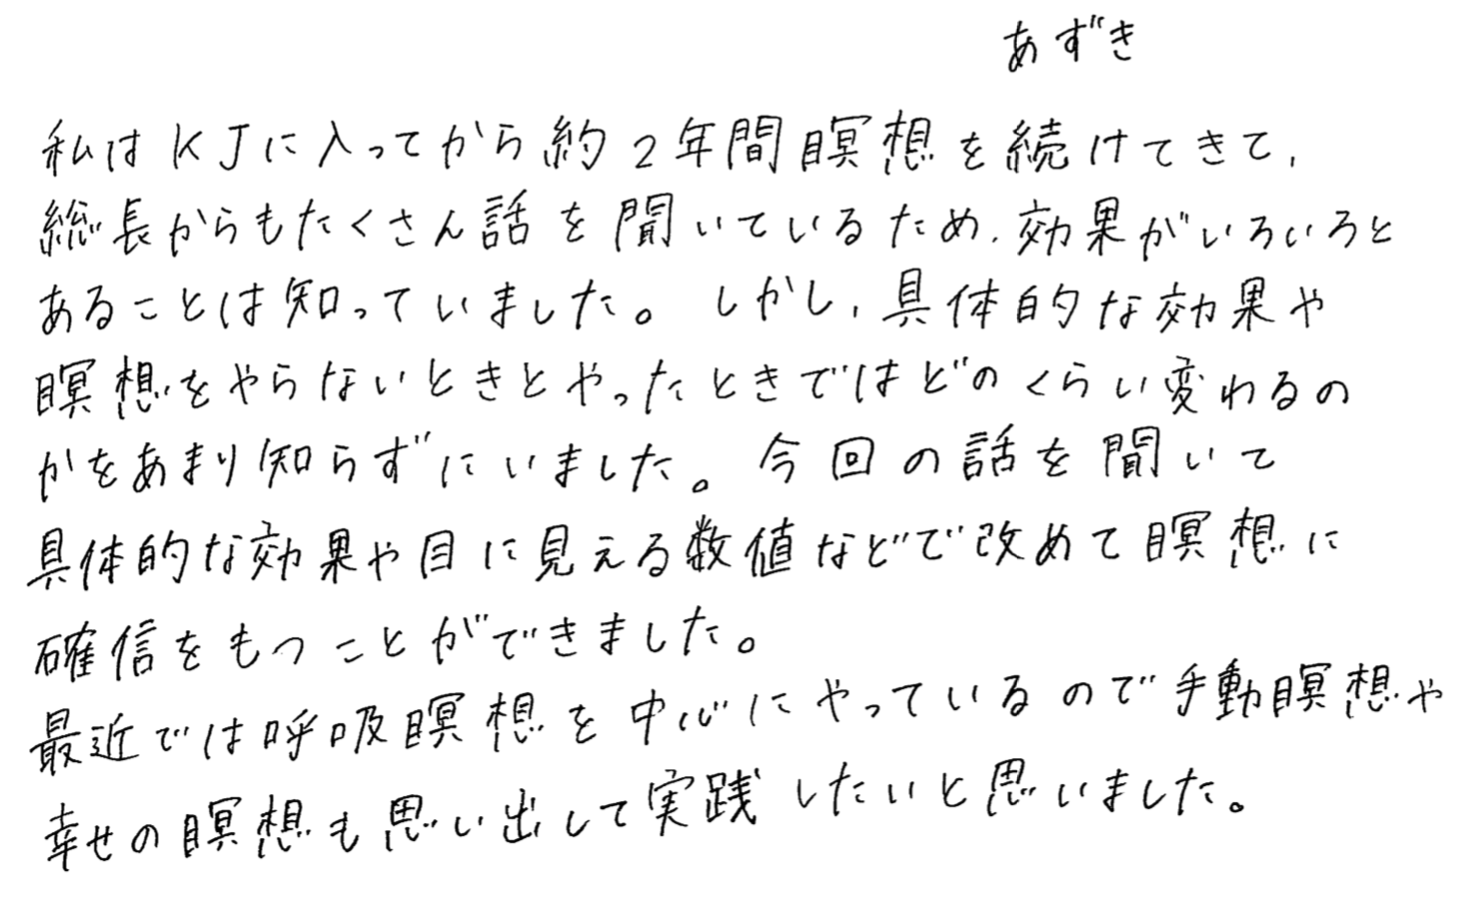 あずき
私はKJに入ってから約2年間瞑想を続けてきて、
総長からもたくさん話を聞いているため、効果がいろいろと
あることは知っていました。しかし、具体的な効果や
瞑想をやらないときとやったときではどのくらい変わるの
かをあまり知らずにいました。今回の話を聞いて
具体的な効果や目に見える数値などで改めて瞑想に
確信をもつことができました。
最近では呼吸瞑想を中心にやっているので手動瞑想や
幸せの瞑想も思い出して実践したいと思いました。